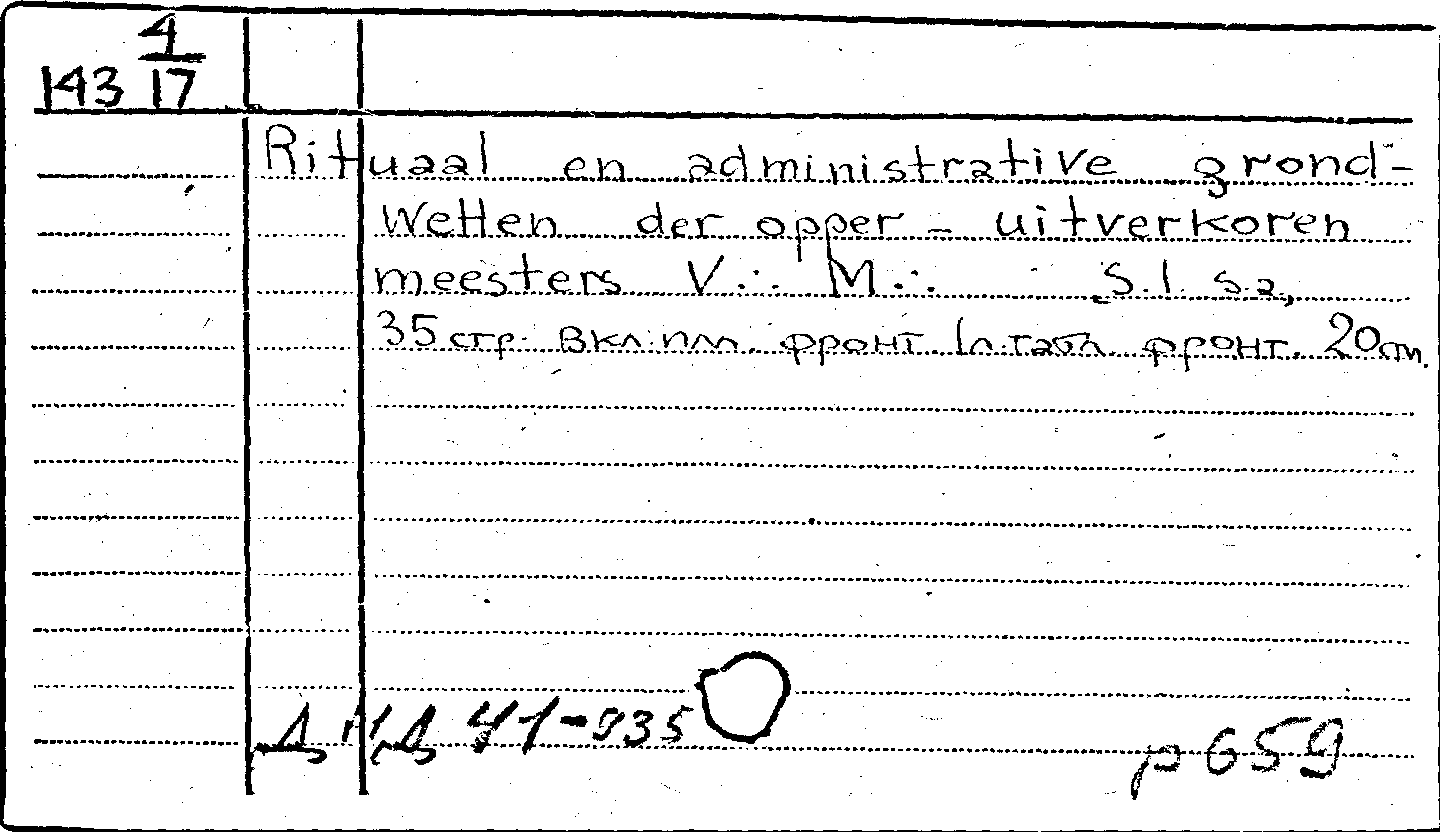 143 4/17
Rituaal en administrative grond-
wetten der opper - uitverkoren
meesters V∴ M∴ S.l. s.a,
35 стр. вкл. илл. фронт. 1 л. табл. фронт. 20 cm.
41-935
p 659